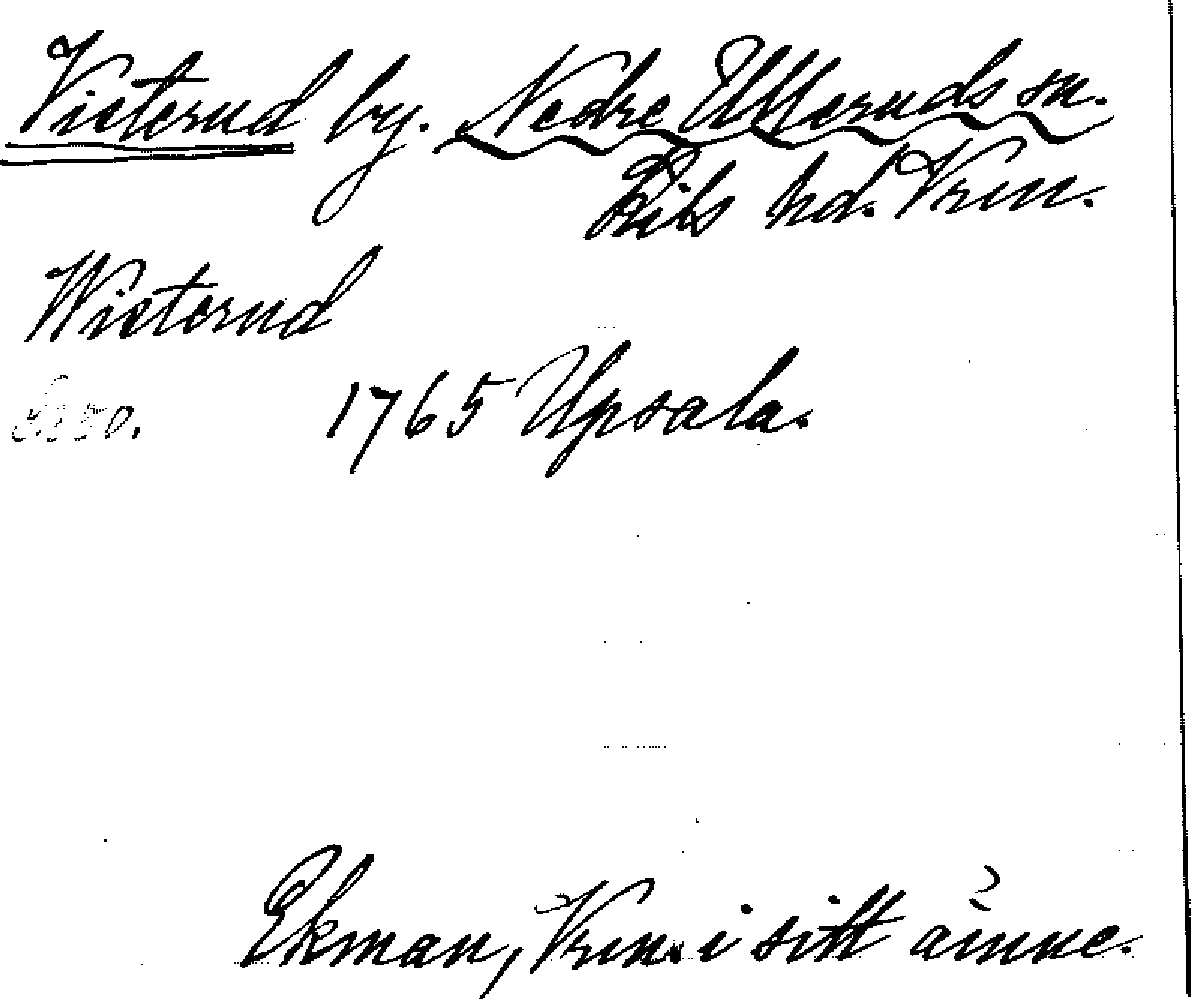 Victerud by. Nedre Ulleruds sn.
Kils hd. Vrm.
Wicterud
1765 Upsala.
Ekman, Vrm. i sitt ämne.